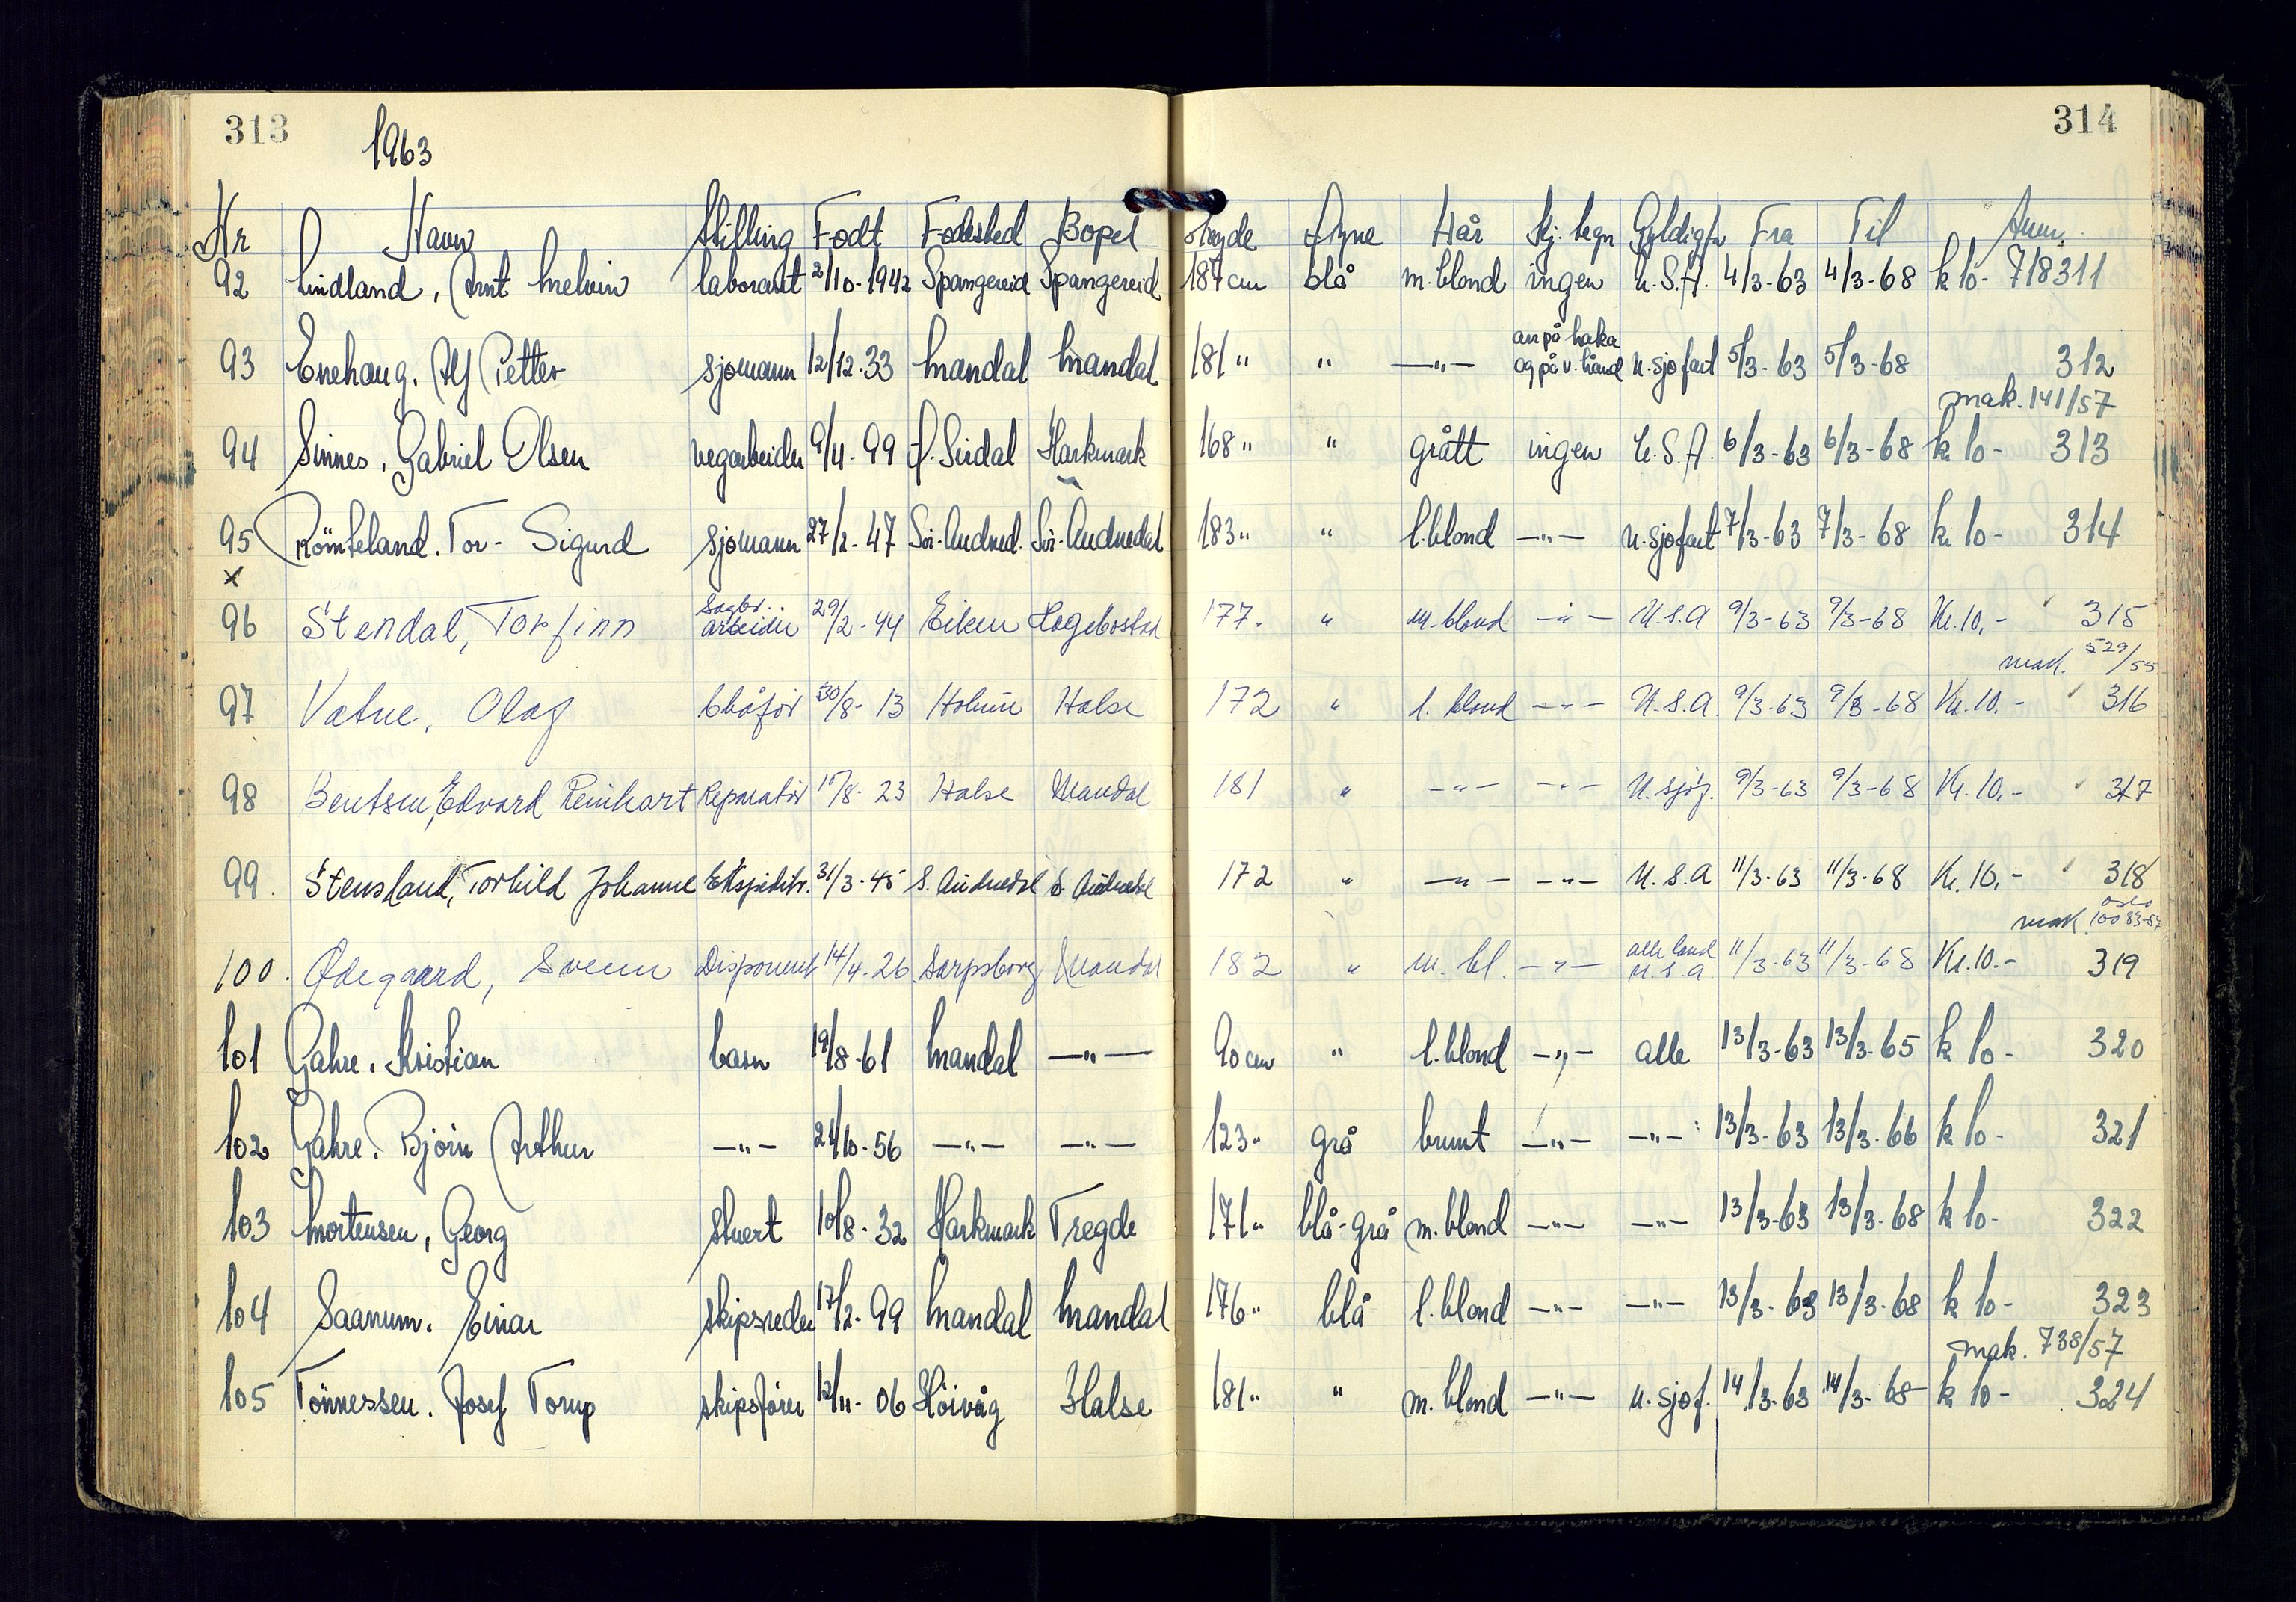 313
314
1963
Nr Navn Stilling Født Fødested Bopel Høyde Øyne Hår Kj. tegn Gyldigh. Fra Til Anm.
92 Lindland, Arnt Melvin laborant 2/10-1942 Spangereid Spangereid 187 cm blå m. blond ingen U.S.A. 4/3-63 4/3-68 k 10- 718311
93 Enehaug. Alf Petter sjømann 12/12-33 Mandal Mandal 181 " " —"— arr på haka og på v. hånd u. sjøfart 5/3-63 5/3-68 312
mak. 141/57
94 Sinnes, Gabriel Olsen vegarbeider 9/4-99 Ø. Sirdal Harkmark 168 " " grått ingen U.S.A. 6/3-63 6/3-68 k 10- 313
95 Römteland. Tor-Sigurd sjømann 27/2-47 Sör-Audned. Sör-Audnedal 183 " " l. blond —"— u. sjøfart 7/3-63 7/3-68 k 10- 314
x
96 Stendal, Torfinn Sagbr. arbeider 29/2-44 Eiken Hægebostad 177. " m. blond —"— U.S.A 9/3-63 9/3-68 Kr. 10,- 315
mak. 529/55
97 Vatne, Olag 30/8-13 Holum Halse 172 " l. blond —"— U.S.A. 9/3-63 9/3-68 Kr. 10.- 316
98 Bentsen, Edvard Reinhart Reparatör 17/8-23 Halse Mandal 181 " —"— —"— U. sjöf. 9/3-63 9/3-68 Kr. 10,- 317
99. Stensland, Torhild Johanne Ekspeditr. 31/3-45 S. Audnedal S. Audnedal 172 " —"— —"— U.S.A 11/3-63 11/3-68 Kr. 10,- 318
mak. Oslo 10083-57
100. Ødegaard, Svenn Disponent 14/4-26 Sarpsborg Mandal 182 " m. bl. —"— alle land U.S.A. 11/3-63 11/3-68 Kr. 10.- 319
101 Gahre, Kristian barn 19/8-61 Mandal —"— 90 cm " l. blond —"— alle 13/3-63 13/3-65 k 10- 320
102 Gahre, Bjørn Arthur —"— 21/10-56 —"— —"— 123 " grå brunt —"— —"— 13/3-63 13/3-66 k 10- 321
103 Mortensen, Georg stuert 10/8-32 Harkmark Tregde 171 " blå-grå m. blond —"— —"— 13/3-63 13/3-68 k 10- 322
104 Saanum, Einar skipsreder 17/2-99 Mandal Mandal 176 " blå l. blond —"— —"— 13/3-63 13/3-68 k 10- 323
mak. 738/57
105 Tönnessen. Josef Torup skipsfører 12/11-06 Höivåg Halse 181 " " m. blond —"— u. sjøf. 14/3-63 14/3-68 k 10- 324